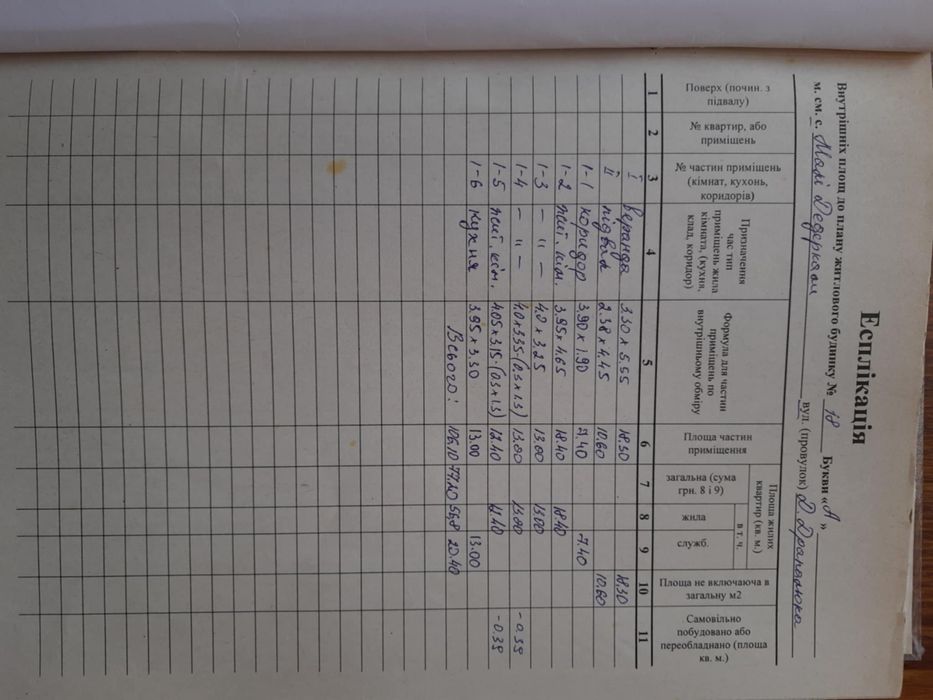 Есплікація
Внутрішніх площ до плану житлового будинку № 18 Букви «А»
м. см. с. Малі Дедеркали вул. (провулок)
Поверх (почин. з підвалу)
№ квартир, або приміщень
№ частин приміщень (кімнат, кухонь, коридорів)
Призначення час тип приміщень жила кімната, (кухня, клад, коридор)
Формула для частин приміщень по внутрішньому обміру
Площа частин приміщення
Площа жилих квартир (кв. м.)
загальна (сума грн. 8 і 9)
в т. ч.
жила
служб.
Площа не включаюча в загальну м2
Самовільно побудовано або переобладнано (площа кв. м.)
1 2 3 4 5 6 7 8 9 10 11
I веранда 3.30 x 5.55 18.30 18.30
II підвал 2.38 x 4.45 10.60 10.60
1-1 коридор 3.90 x 1.90 7.40 7.40
1-2 жит. кім. 3.95 x 4.65 18.40 18.40
1-3 — " — 4.0 x 3.25 13.00 13.00
1-4 — " — 4.0 x 3.35-(0.3 x 1.3) 13.00 13.00 -0.39
1-5 жит. кім. 4.05 x 3.15-(0.3 x 1.3) 12.40 12.40 -0.39
1-6 кухня 3.95 x 3.30 13.00 13.00
Всього: 106.10 77.20 56,8 20.40